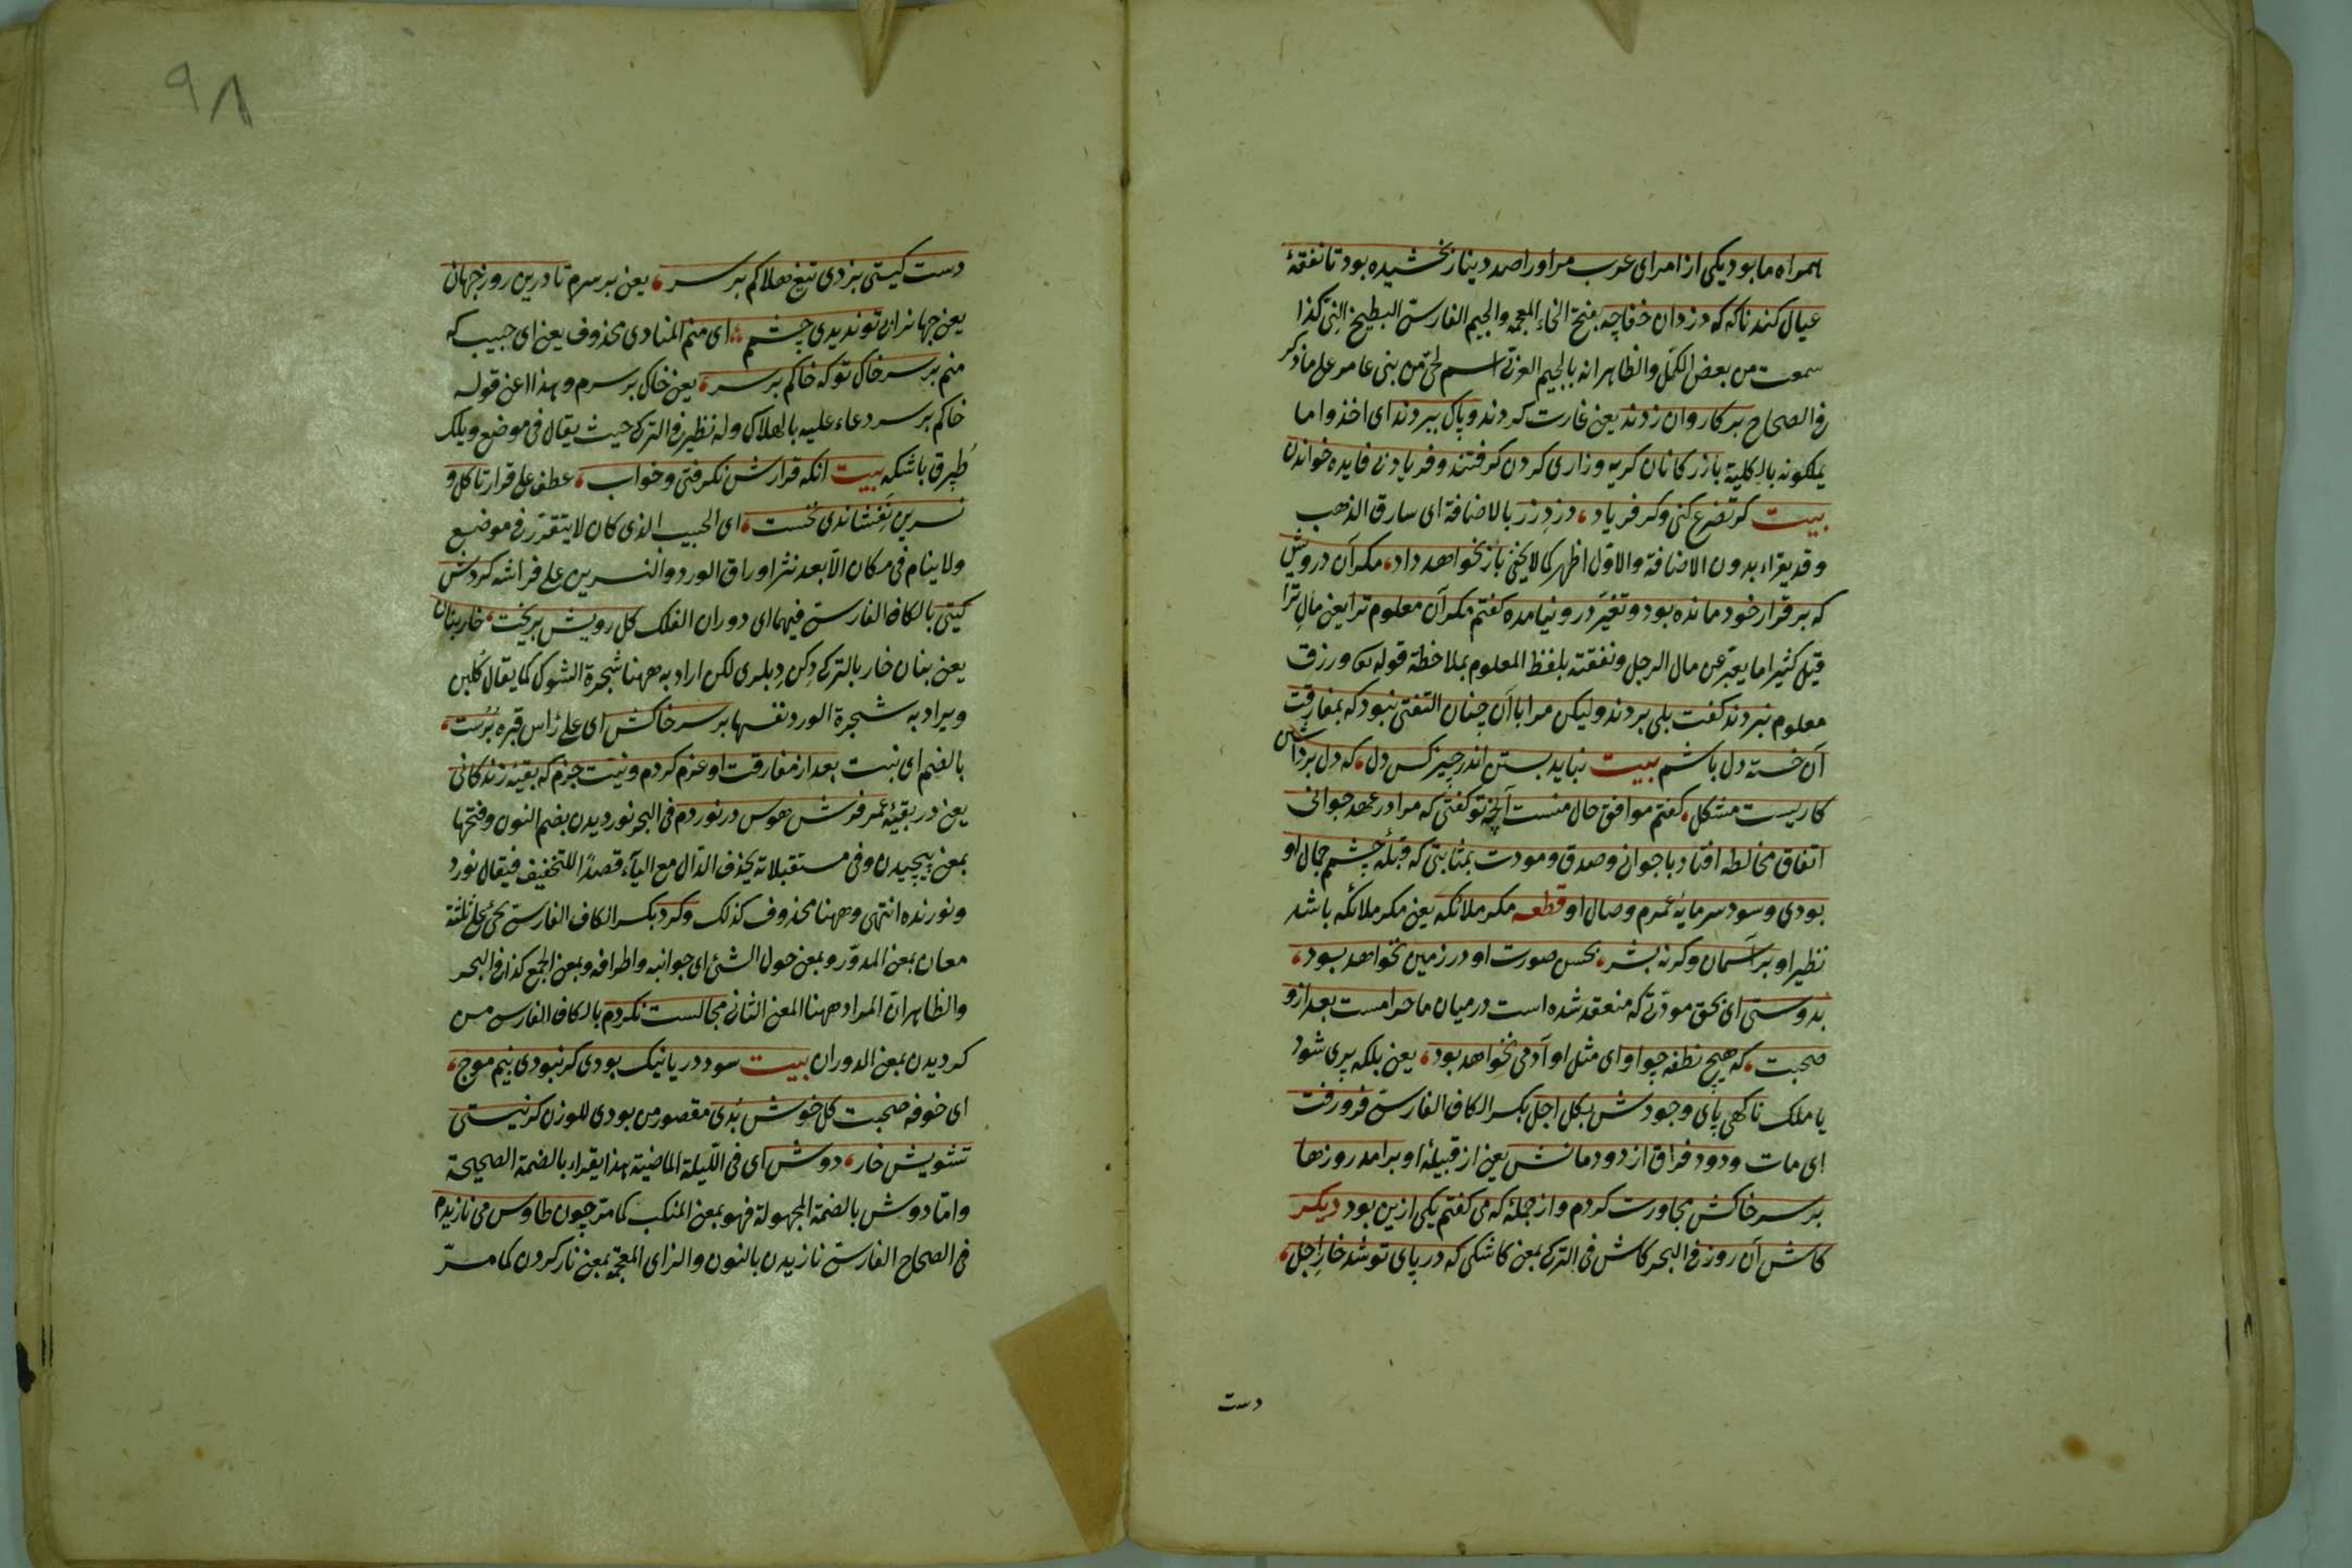 همراه ما بود یکی از امرای عرب مر اورا صد دینار بخشیده بود تا نفقهٔ
عیال کند ناکه که دزدان خفاچه بفتح الخاء المعجمه والجیم الفارسی البطیخ النی کذا
سمعت من بعض الکمّل والظاهر انه بالجیم العربی اسم لحیّ من بنی عامر علی ما ذکر
فی الصحاح بر کاروان زدند یعنی غارت کردند و پاک ببردند ای اخذوا ما
یملکونه بالکلیة بازرکانان کریه و زاری کردن کرفتند و فریاد بی فایده خواندن
بیت کر تضرع کنی و کر فریاد، دزدِ زر بالاضافة ای سارق الذهب
وقد یقراء بدون الاضافة والاول اظهر کما لا یخفی باز نخواهد داد، مکر آن درویش
که بر قرار خود مانده بود و تغیّر درو نیامده کفتم مکر آن معلوم ترا یعنی مالِ ترا
قیل کثیرا ما یعبّر عن مال الرجل ونفقته بلفظ المعلوم بملاحظة قوله تعا ورزق
معلوم نبردند کفت بلی بردند ولیکن مرا با آن چنان التفتی نبود که بمفارقت
آن خسته دل باشم بیت نباید بستن اندر چیز کس دل، که دل برداشتن
کاریست مشکل، کفتم موافق حال منست آنچه تو کفتی که مرا در عهد جوانی
اتفاق مخالطه افتاد با جوانی و صدق و مودت بمثابتی که قبلهٔ چشمم جمال او
بودی و سود سرمایهٔ عمرم وصال او قطعه مکر ملائکه یعنی مکر ملائکه باشد
نظیر او بر آسمان وکرنه بشر، بحسن صورت او در زمین نخواهد بود،
بدوستی ای بحق مودّتی که منعقد شده است در میان ما حرامست بعد ازو
صحبت، که هیچ نطفه چو او ای مثل او آدمی نخواهد بود، یعنی بلکه پری شود
یا ملک ناکهی پای وجودش بکل اجل بکسر الکاف الفارسی فرو رفت
ای مات ودود فراق از دودمانش یعنی از قبیلهٔ او برآمد روزها
بر سر خاکش مجاورت کردم و از جمله که می کفتم یکی ازین بود دیکر
کاش آن روز فی البحر کاش فی الترکی بمعنی کاشکی که در پای تو شد خارِ اجل،
دست
۹۸
دست کیتی بزدی تیغ هلاکم بر سر، یعنی بر سرم تا درین روز جهان
یعنی جهانرا بی تو ندیدی چشمم، ای منم المنادی محذوف یعنی ای حبیب که
منم بر سر خاک تو که خاکم بر سر، یعنی خاک بر سرم وهذا اعنی قوله
خاکم بر سر دعاء علیه بالهلاک وله نظیر فی الترکی حیث یقال فی موضع ویلک
طپرق باشکه بیت انکه قرارش نکرفتی و خواب، عطف علی قرار تا کل و
نسرین نفشاندی نخست، ای الحبیب الذی کان لا یتقرّر فی موضع
ولا ینام فی مکان الّا بعد نثر اوراق الورد والنسرین علی فراشه کردش
کیتی بالکاف الفارسی فیهما ای دوران الفلک کل رویش بریخت، خاربنان
یعنی بنان خار بالترکی دکن دبلری لکن اراد به ههنا شجرة الشوک کما یقال کلبن
ویراد به شجرة الورد نفسها بر سر خاکش ای علی رأس قبره برست،
بالضم ای نبت بعد از مفارقت او عزم کردم و نیّت جزم که بقیهٔ زندکانی
یعنی در بقیهٔ عمر فرش هوس در نوردم فی البحر نوردیدن بضم النون وفتحها
بمعنی پیچیدن وفی مستقبلاته یحذف الدال مع الیاء قصدًا للتخفیف فیقال نورد
ونورنده انتهی وههنا محذوف کذلک وکرد بکسر الکاف الفارسی یجئ علی ثلثة
معان بمعنی المدوّر وبمعنی حول الشئ ای جوانبه واطرافه وبمعنی الجمع کذا فی البحر
والظاهر انّ المراد ههنا المعنی الثانی مجالست نکردم بالکاف الفارسی من
کردیدن بمعنی الدوران بیت سود دریا نیک بودی کر نبودی بیم موج،
ای خوفه صحبت کل خوش بُدی مقصور من بودی للوزن کر نیستی
تشویش خار، دوش ای فی اللّیلة الماضیة هذا یقراء بالضمة الصحیحة
وامّا دوش بالضمة المجهولة فهو بمعنی المنکب کما مرّ چون طاوس می نازیدم
فی الصحاح الفارسی نازیدن بالنون والزای المعجمة بمعنی ناز کردن کما مرّ